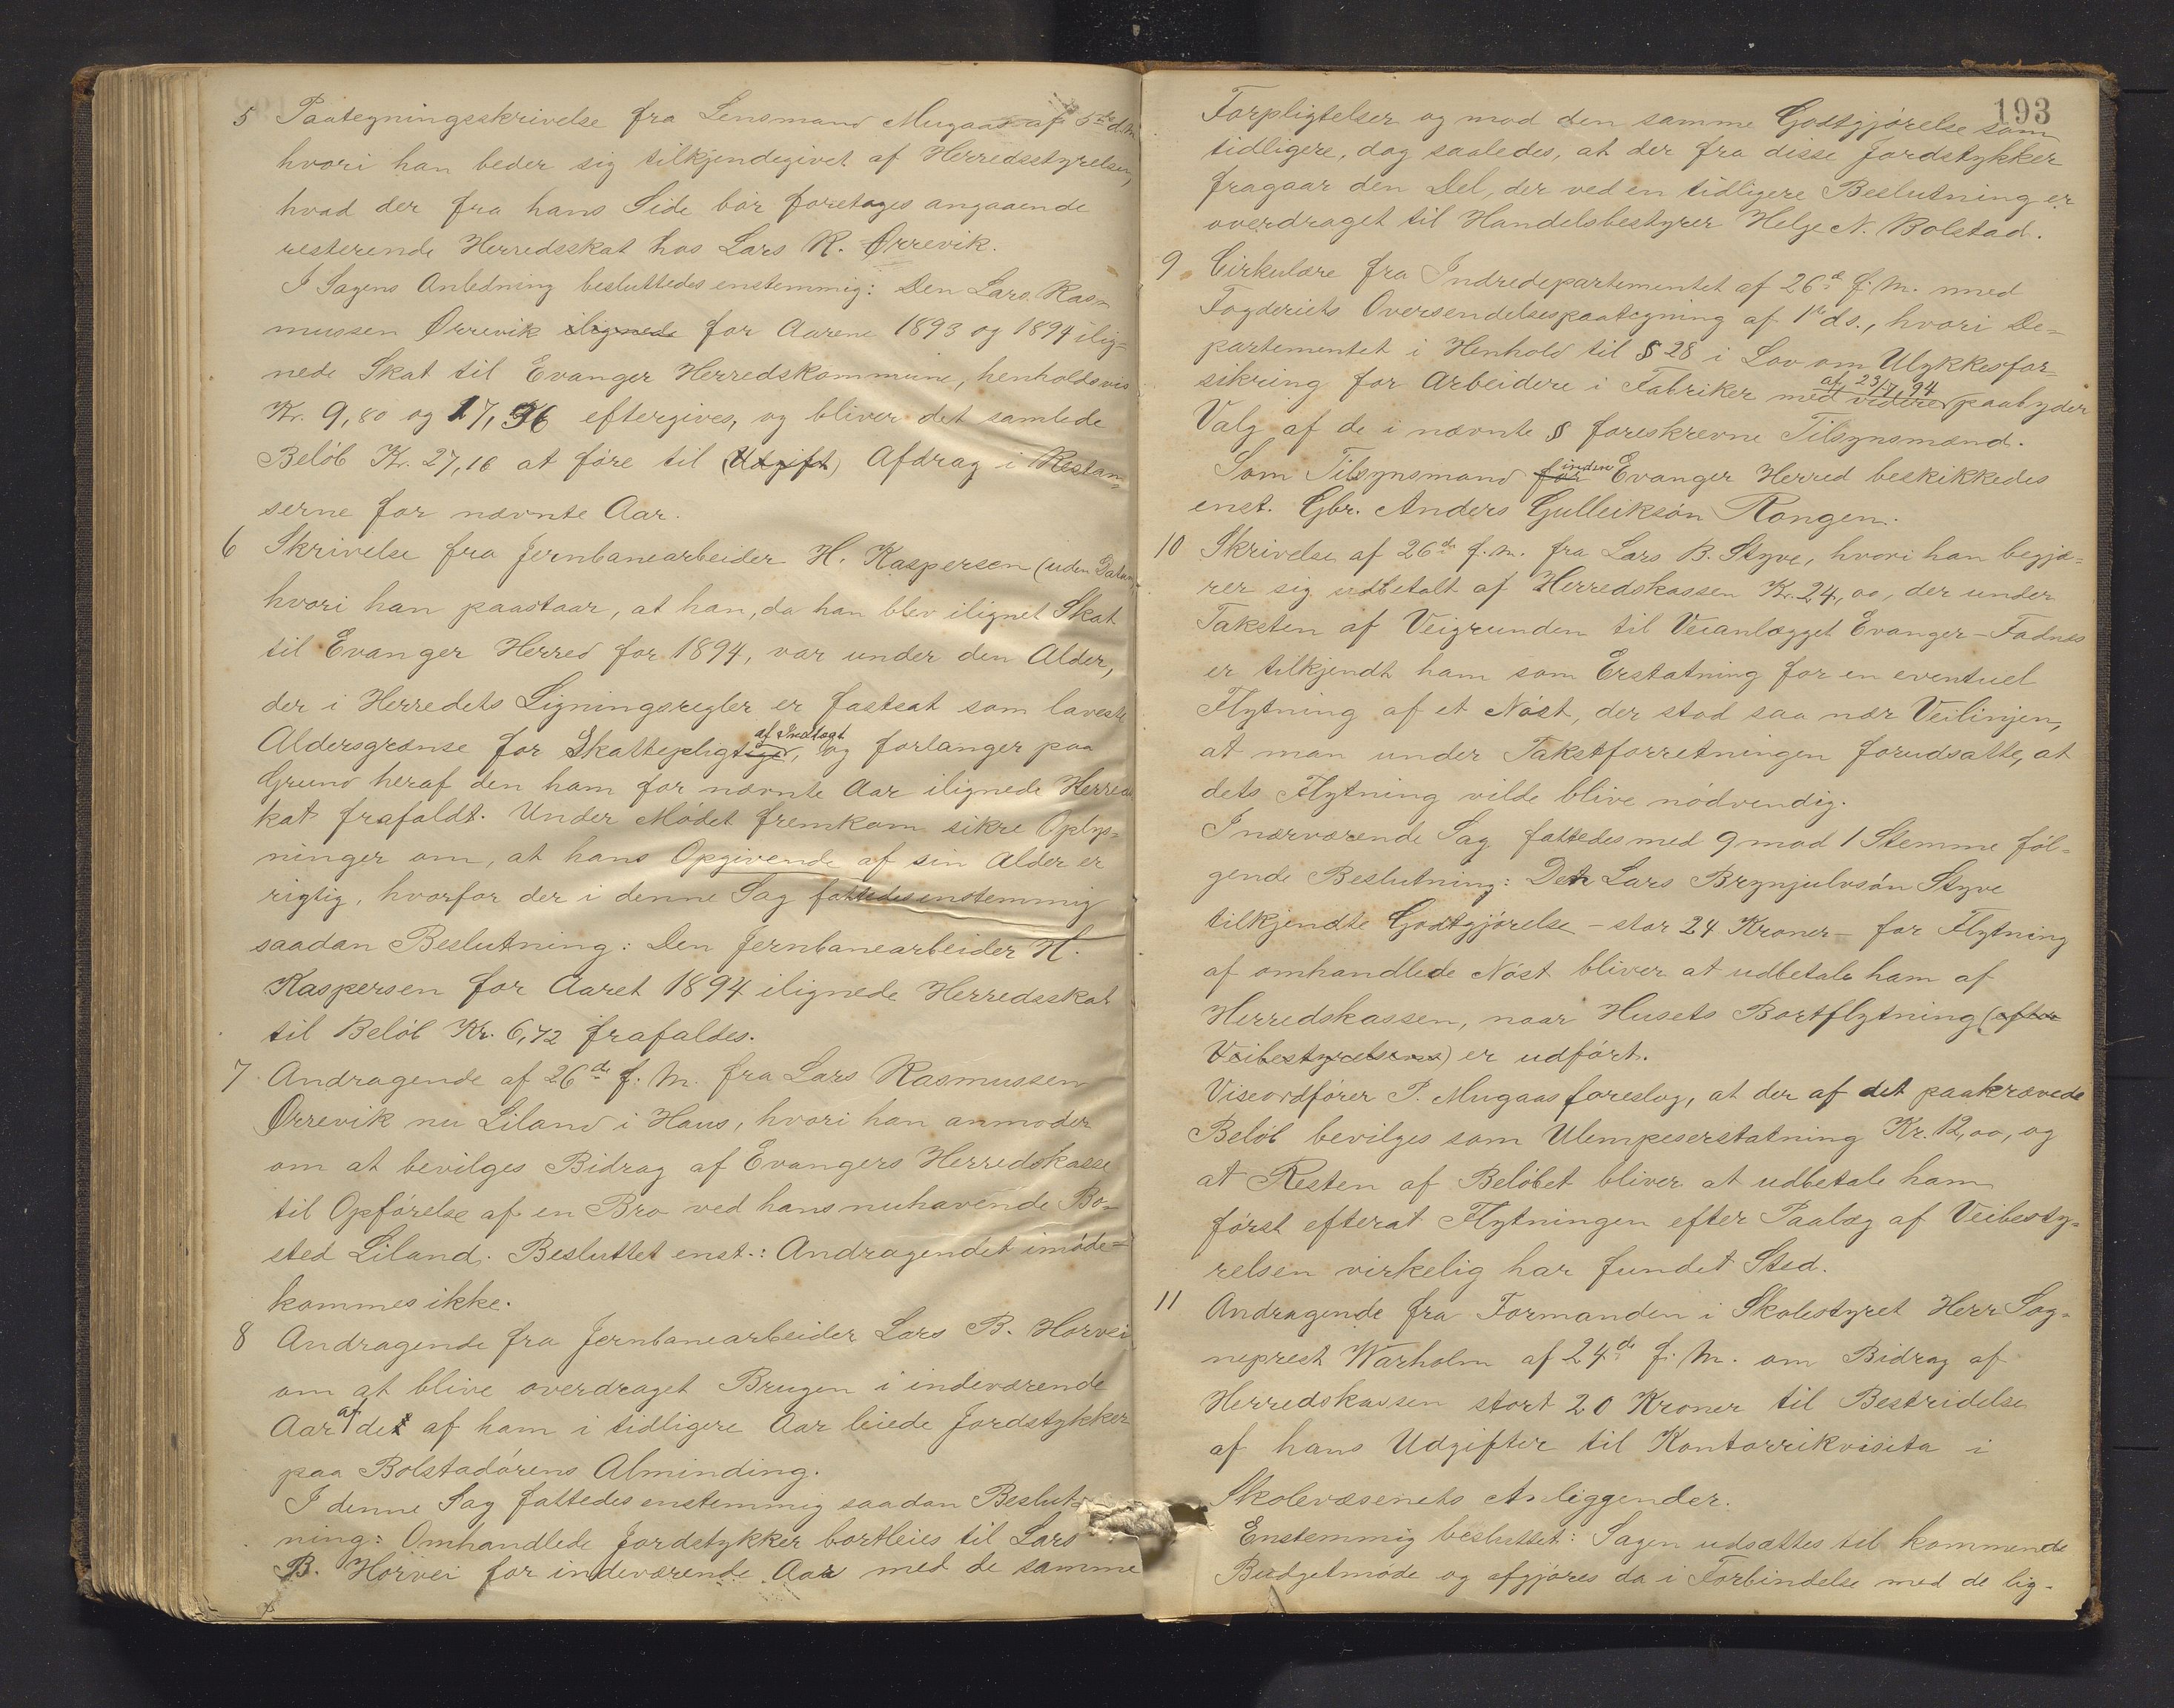 5 Paategningsskrivelse fra Lensmand Mugaas af 5te d.M.
hvori han beder sig tilkjendegivet af Herredsstyrelsen,
hvad der fra hans Side bør foretages angaaende
resterende Herredsskat hos Lars R. Ørrevik.
I Sagens Anledning besluttedes enstemmig: Den Lars Ras-
mussen Ørrevik ilignede for Aarene 1893 og 1894 ilig=
nede Skat til Evanger Herredskommune, henholdsvis
Kr. 9,80 og 17,36 eftergives, og bliver det samlede
Beløb Kr. 27,16 at føre til (Udgift) Afdrag i Restan-
serne for nævnte Aar.
6 Skrivelse fra Jernbanearbeider H. Kaspersen (uden Datum)
hvori han paastaar, at han, da han blev ilignet Skat
til Evanger Herred for 1894, var under den Alder,
der i Herredets Ligningsregler er fastsat som laveste
af Indtægt
Aldersgrænse for Skattepligtige, og forlanger paa
Grund heraf den ham for nævnte Aar ilignede Herreds
kat frafaldt. Under Mødet fremkom sikre Oplys-
ninger om, at hans Opgivende af sin Alder er
rigtig, hvorfor der i denne Sag fattedes enstemmig
saadan Beslutning: Den Jernbanearbeider H.
Kaspersen for Aaret 1894 ilignede Herredsskat
til Beløb Kr. 6,72 frafaldes.
7 Andragende af 26de f. M. fra Lars Rasmussen
Ørrevik nu Liland i Haus, hvori han anmoder
om at bevilges Bidrag af Evangers Herredskasse
til Opførelse af en Bro ved hans nuhavende Bo-
sted Liland. Besluttet enst.: Andragendet imøde=
kommes ikke.
8 Andragende fra Jernbanearbeider Lars B. Horvei
om at blive overdraget Brugen i indeværende
Aar af det af ham i tidligere Aar leiede Jordstykker
paa Bolstadørens Alminding.
I denne Sag fattedes enstemmig saadan Beslut-
ning: Omhandlede Jordstykker bortleies til Lars
B. Horvei for indeværende Aar med de samme
193
Forpligtelser og mod den samme Godtgjørelse som
tidligere, dog saaledes, at der fra disse Jordstykker
fragaar den Del, der ved en tidligere Beslutning er
overdraget til Handelsbestyrer Helge N. Bolstad.
9 Cirkulære fra Indredepartementet af 26de f. M. med
Fogderiets Oversendelsespaategning af 1ste ds., hvori De=
partementet i Henhold til § 28 i Lov om Ulykkesfor=
af 23/7 94
sikring for Arbeidere i Fabriker med videre paabyder
Valg af de i nævnte § foreskrevne Tilsynsmænd.
Som Tilsynsmand for inden Evanger Herred beskikkedes
enst. Gbr. Anders Gulleiksøn Rongen.
10 Skrivelse af 26de f. m. fra Lars B. Styve, hvori han begjæ=
rer sig udbetalt af Herredskassen Kr. 24,00, der under
Taksten af Veigrunden til Veianlægget Evanger-Fadnes
er tilkjendt ham som Erstatning for en eventuel
Flytning af et Nøst, der stod saa nær Veilinjen,
at man under Takstforretningen forudsatte, at
dets Flytning vilde blive nødvendig.
I nærværende Sag fattedes med 9 mod 1 Stemme føl=
gende Beslutning: Den Lars Brynjulvsøn Styve
tilkjendte Godtgjørelse - stor 24 Kroner - for Flytning
af omhandlede Nøst bliver at udbetale ham af
Herredskassen, naar Husets Bortflytning (efter
Veibestyrelsens) er udført.
Viseordfører P. Mugaas foreslog, at der af det paakrævede
Beløb bevilges som Ulempeserstatning Kr. 12,00, og
at Resten af Beløbet bliver at udbetale ham
først efterat Flytningen efter Paalæg af Veibesty=
relsen virkelig har fundet Sted.
11 Andragende fra Formanden i Skolestyret Herr Sog-
neprest Warholm af 24de f. M. om Bidrag af
Herredskassen stort 20 Kroner til Bestridelse
af hans Udgifter til Kontorrikvisita i
Skolevæsenets Anliggender.
Enstemmig besluttet: Sagen udsættes til kommende
Budgetmøde og afgjøres da i Forbindelse med de lig-